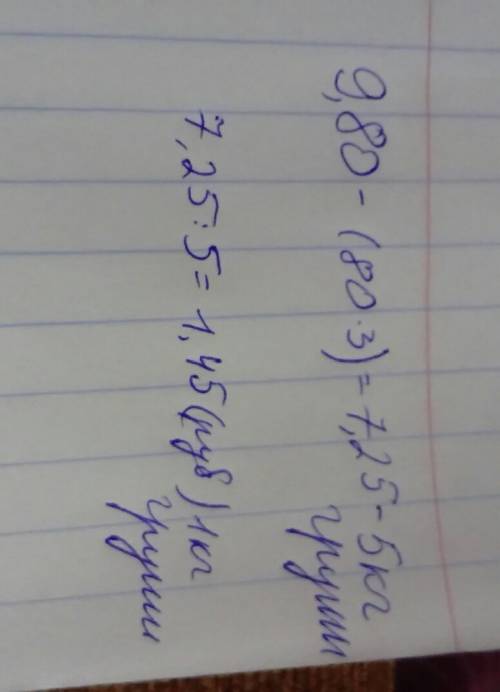 9,80 - (80·3) = 7,25 - 5кг
груши
7,25:5 = 1,45 (руб) 1кг
груши